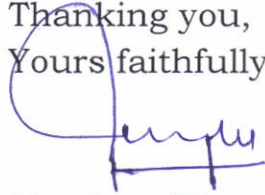 Thanking you,
Yours faithfully